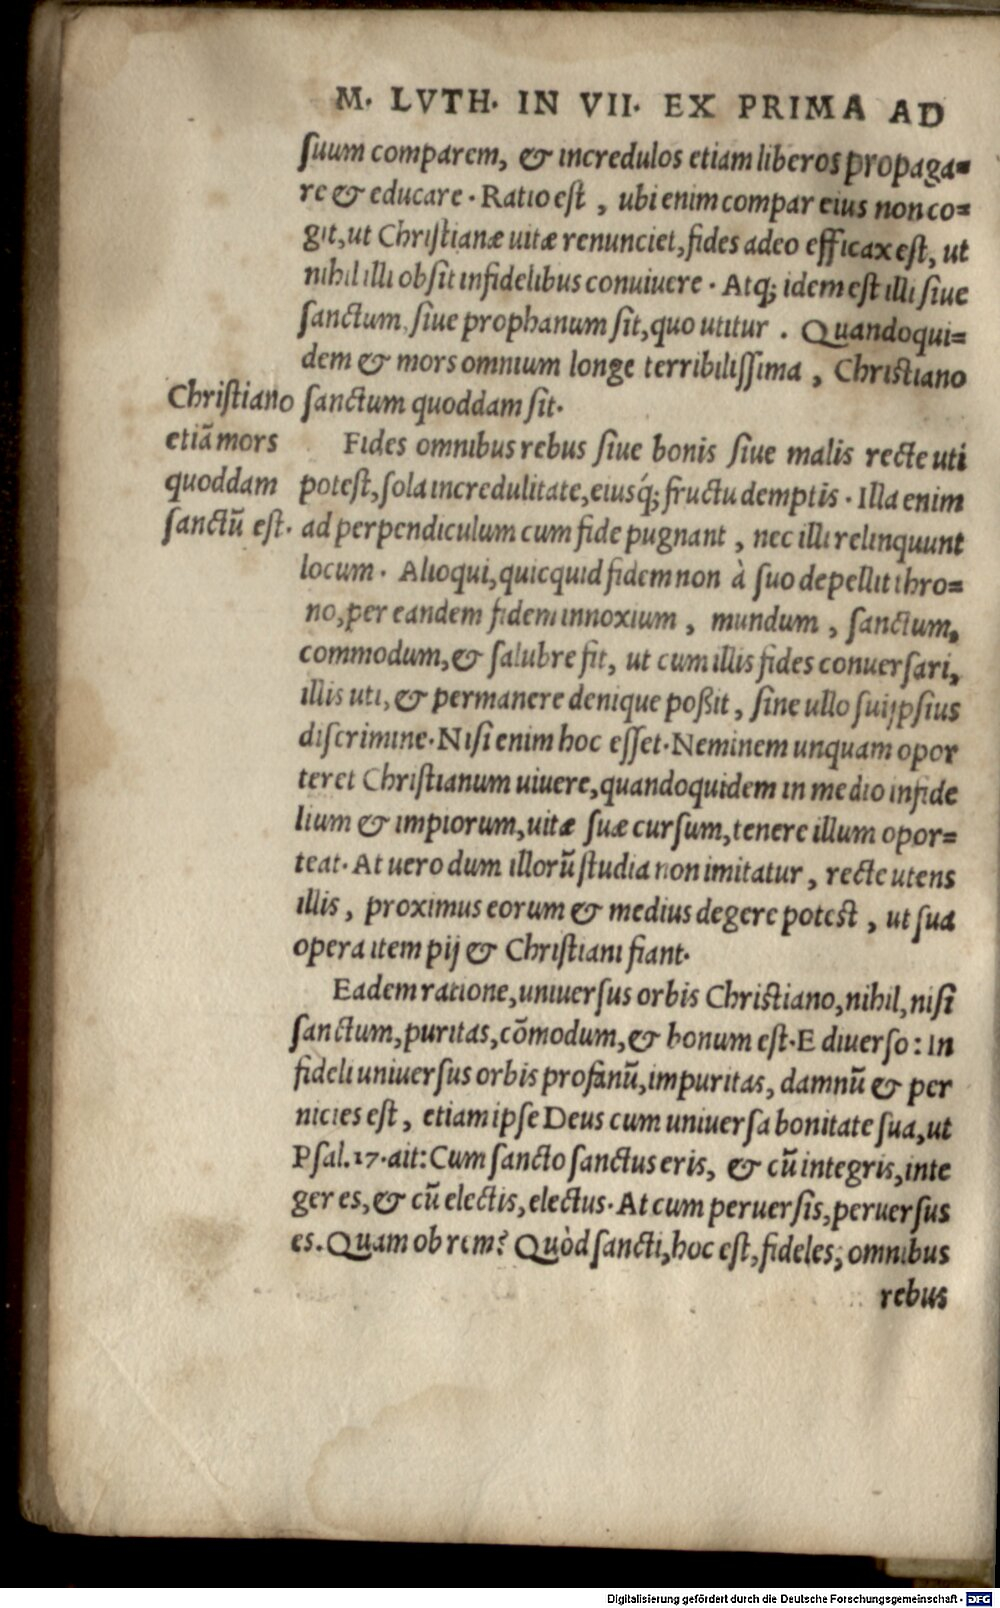 M. LVTH. IN VII. EX PRIMA AD
suum comparem, & incredulos etiam liberos propaga=
re & educare. Ratio est, ubi enim compar eius non co=
git, ut Christianæ uitæ renunciet, fides adeo efficax est, ut
nihil illi obsit infidelibus conuiuere. Atq; idem est illi siue
sanctum, siue prophanum sit, quo utitur. Quandoqui=
dem & mors omnium longe terribilissima, Christiano
sanctum quoddam sit.
Christiano
etiã mors
quoddam
sanctũ est.
Fides omnibus rebus siue bonis siue malis recte uti
potest, sola incredulitate, eiusq́; fructu demptis. Illa enim
ad perpendiculum cum fide pugnant, nec illi relinquunt
locum. Alioqui, quicquid fidem non à suo depellit thro=
no, per eandem fidem innoxium, mundum, sanctum,
commodum, & salubre fit, ut cum illis fides conuersari,
illis uti, & permanere denique poßit, sine ullo suijpsius
discrimine. Nisi enim hoc esset. Neminem unquam opor
teret Christianum uiuere, quandoquidem in medio infide
lium & impiorum, uitæ suæ cursum, tenere illum opor=
teat. At uero dum illorũ studia non imitatur, recte utens
illis, proximus eorum & medius degere potest, ut sua
opera item pij & Christiani fiant.
Eadem ratione, uniuersus orbis Christiano, nihil, nisi
sanctum, puritas, cõmodum, & bonum est. E diuerso: In
fideli uniuersus orbis profanũ, impuritas, damnũ & per
nicies est, etiam ipse Deus cum uniuersa bonitate sua, ut
Psal. 17. ait: Cum sancto sanctus eris, & cũ integris, inte
ger es, & cũ electis, electus. At cum peruersis, peruersus
es. Quam ob rem? Quòd sancti, hoc est, fideles; omnibus
rebus
Digitalisierung gefördert durch die Deutsche Forschungsgemeinschaft - DFG